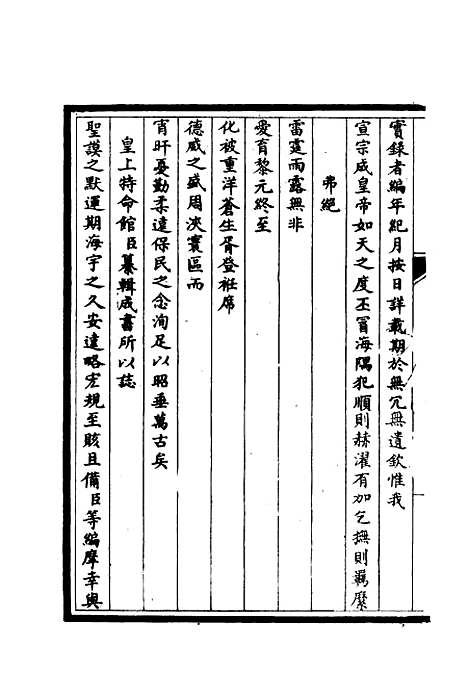 實錄者編年紀月按日詳載期於無冗無遺欽惟我
宣宗成皇帝如天之度丕冒海隅犯順則赫濯有加乞撫則羈縻
弗絕
雷霆雨露無非
愛育黎元終至
化被重洋蒼生胥登袵席
德威之盛周浹寰區而
宵旰憂勤柔遠保民之念洵足以昭垂萬古矣
皇上特命館臣纂輯成書所以誌
聖謨之默運期海宇之久安遠略宏規至賅且備臣等編摩幸與